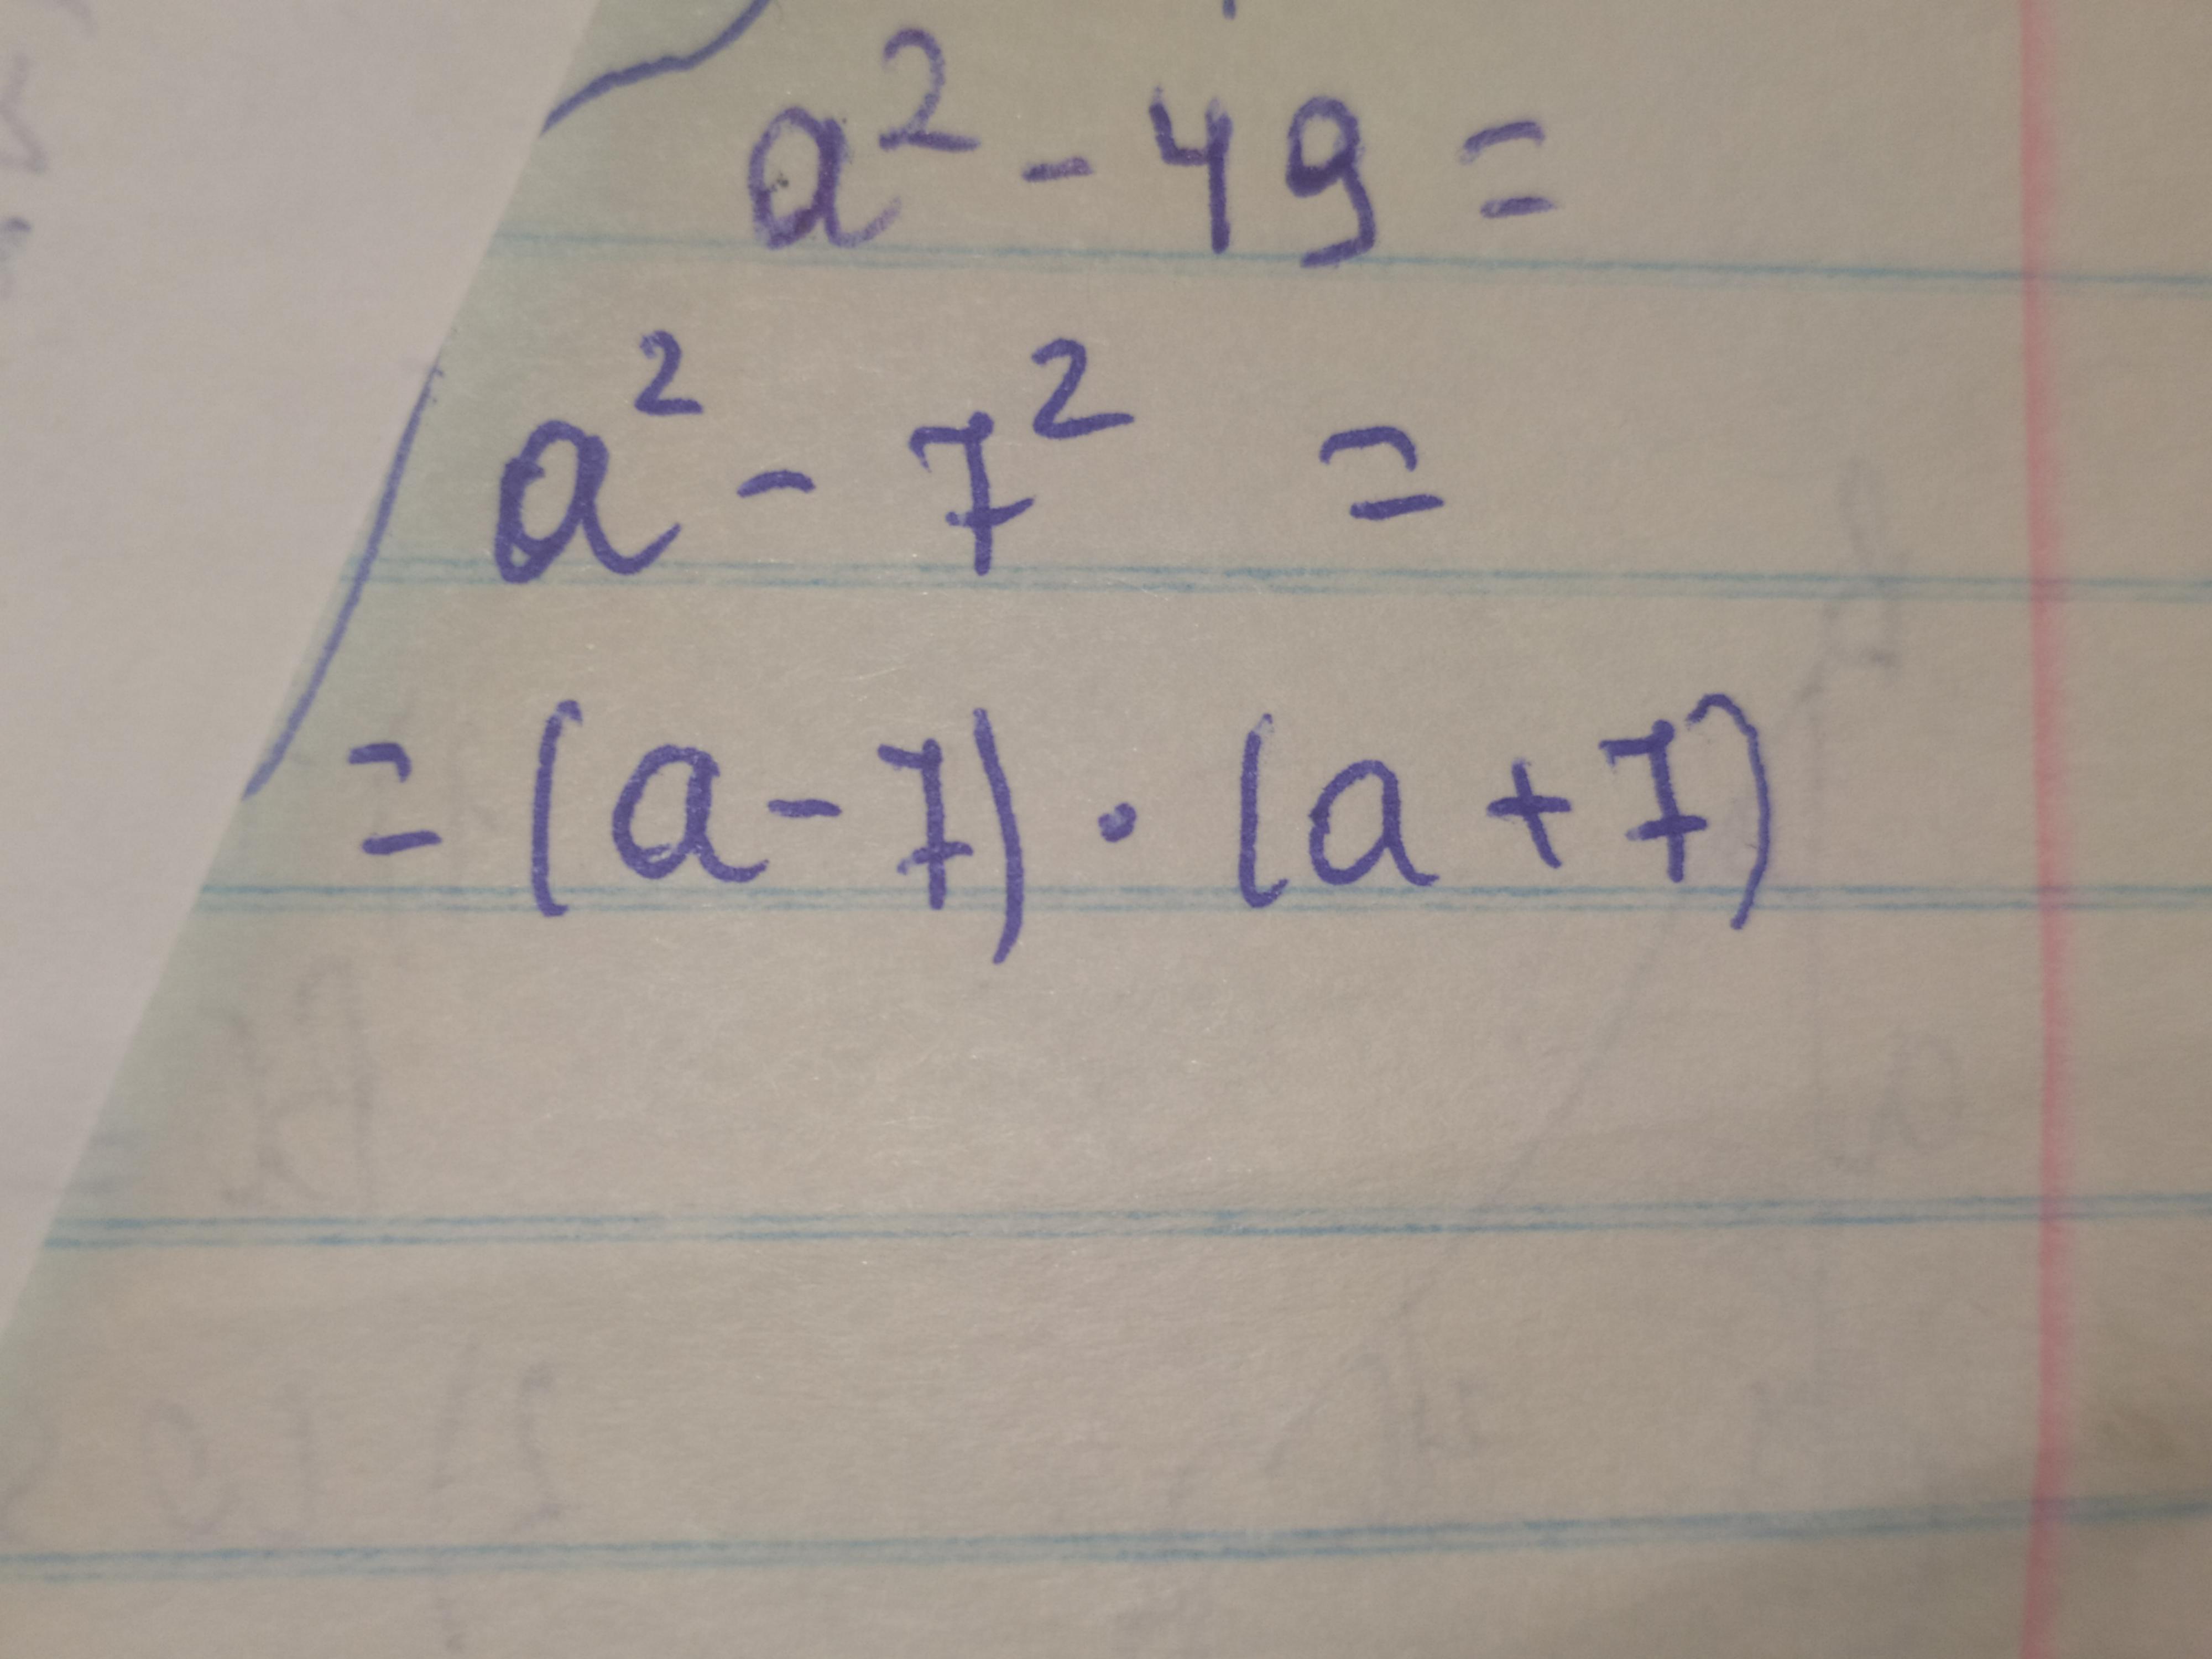 a² - 49 =
a² - 7² =
= (a - 7) · (a + 7)